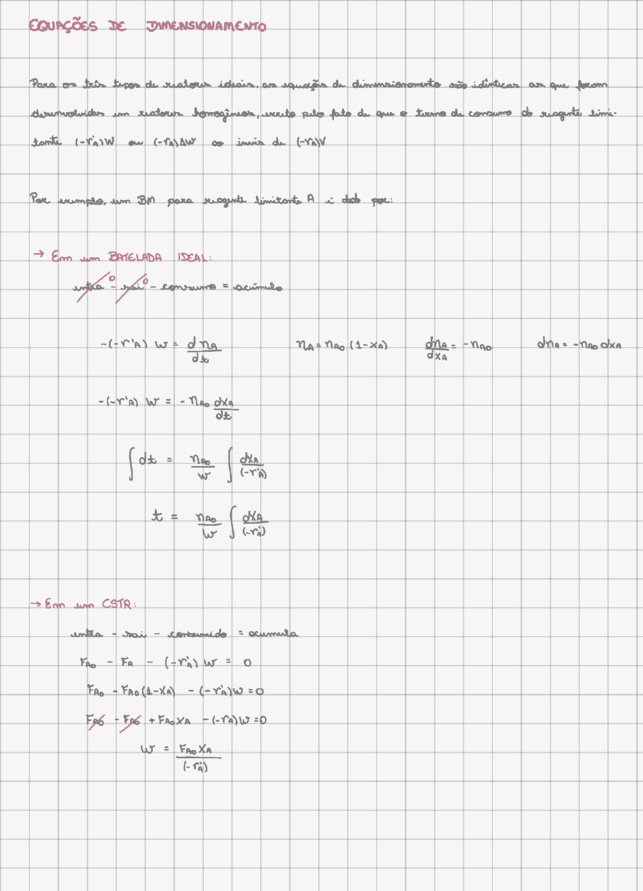 EQUAÇÕES DE DIMENSIONAMENTO
Para os três tipos de reatores ideais, as equações de dimensionamento são idênticas as que foram
desenvolvidas em reatores homogêneos, exceto pelo fato de que o termo de consumo do reagente limi-
tante (-r'A)W ou (-r'A)ΔW ao invés de (-rA)V
Por exemplo, um BM para reagente limitante A é dado por:
→ Em um BATELADA IDEAL:
entra 0 - sai 0 - consumo = acúmulo
-(-r'A) W = dnA/dt nA = nA0 (1-XA) dnA/dXA = -nA0 dnA = -nA0 dXA
-(-r'A) W = -nA0 dXA/dt
∫ dt = nA0/W ∫ dXA/(-r'A)
t = nA0/W ∫ dXA/(-r'A)
→ Em um CSTR:
entra - sai - consumido = acumula
FA0 - FA - (-r'A) W = 0
FA0 - FA0(1-XA) - (-r'A)W = 0
FA0 - FA0 + FA0XA - (-r'A)W = 0
W = FA0XA/(-r'A)